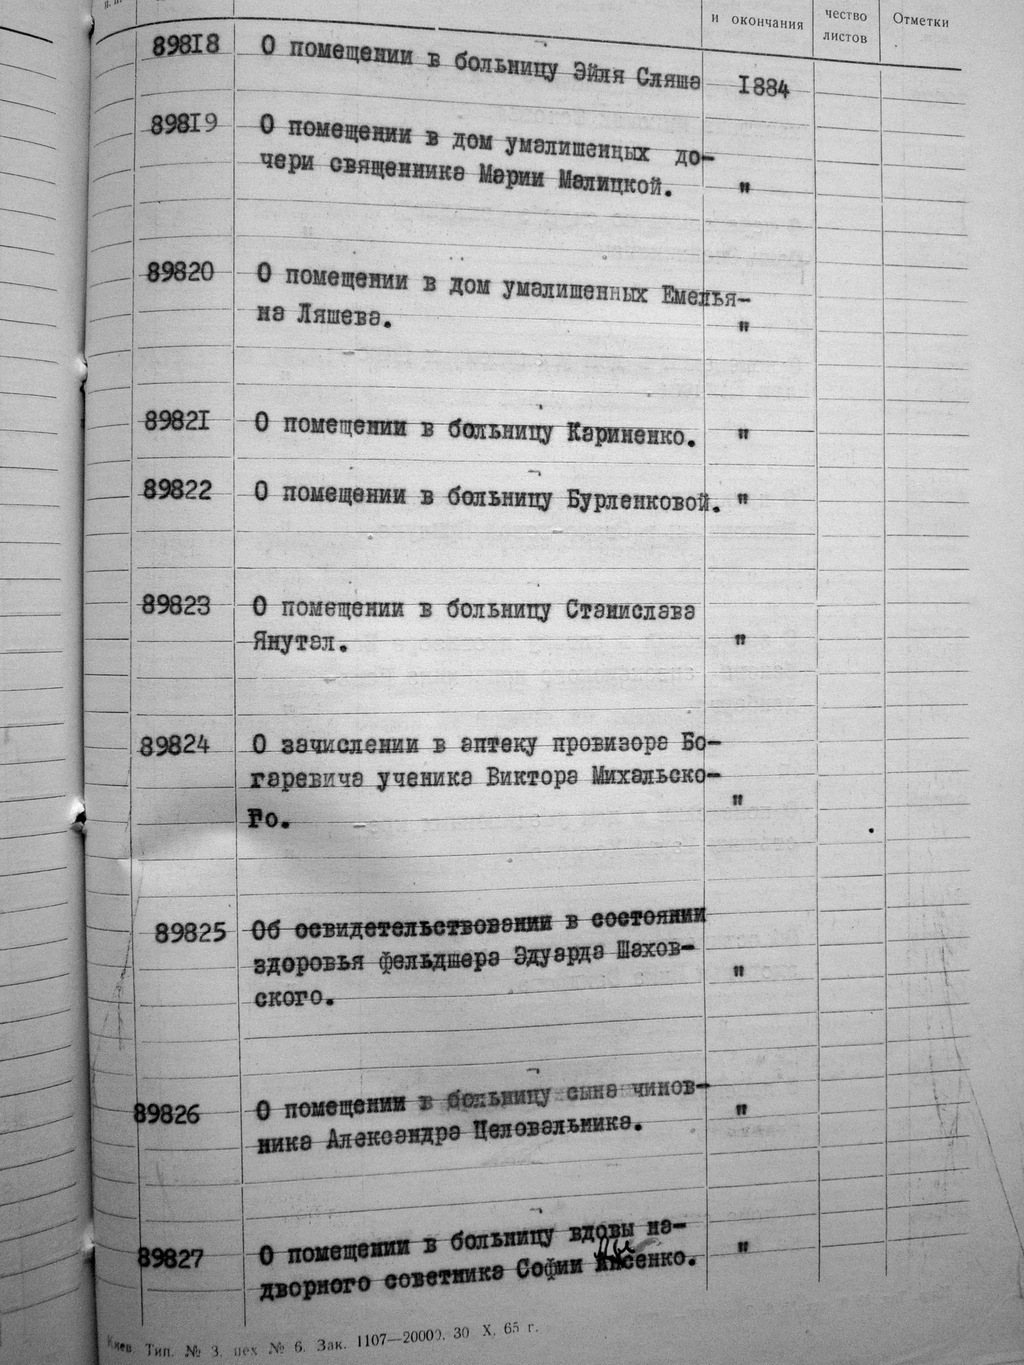 и окончания
чество
листов
Отметки
89818 О помещении в больницу Эйля Сляша 1884
89819 О помещении в дом умалишенных до-
чери священника Марии Малицкой. "
89820 О помещении в дом умалишенных Емелья-
на Ляшева. "
89821 О помещении в больницу Кариненко. "
89822 О помещении в больницу Бурленковой. "
89823 О помещении в больницу Станислава
Янутал. "
89824 О зачислении в аптеку провизора Бо-
гаревича ученика Виктора Михальско-
го. "
89825 Об освидетельствовании в состоянии
здоровья фельдшера Эдуарда Шахов-
ского. "
89826 О помещении в больницу сына чинов-
ника Александра Целовальника. "
89827 О помещении в больницу вдовы на-
дворного советника Софии "
Киев. Тип. № 3. цех № 6. Зак. 1107—20000. 30 X. 65 г.